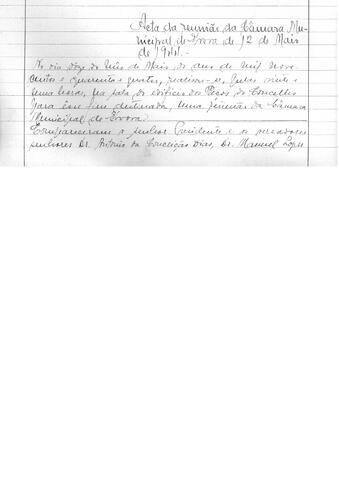 Acta da reunião da Câmara Mu-
nicipal de Évora de 12 de Maio
de 1944.-
No dia doze do mês de Maio do ano de mil nove
centos e quarenta e quatro, realizou-se, pelas vinte e
uma horas, na sala do edifício dos Paços do Concelho
para esse fim destinada, uma reunião da Câmara
Municipal de Évora.
Compareceram o senhor Presidente e os vereadores
senhores Dr. António da Conceição Dias, Dr. Manuel Lopes